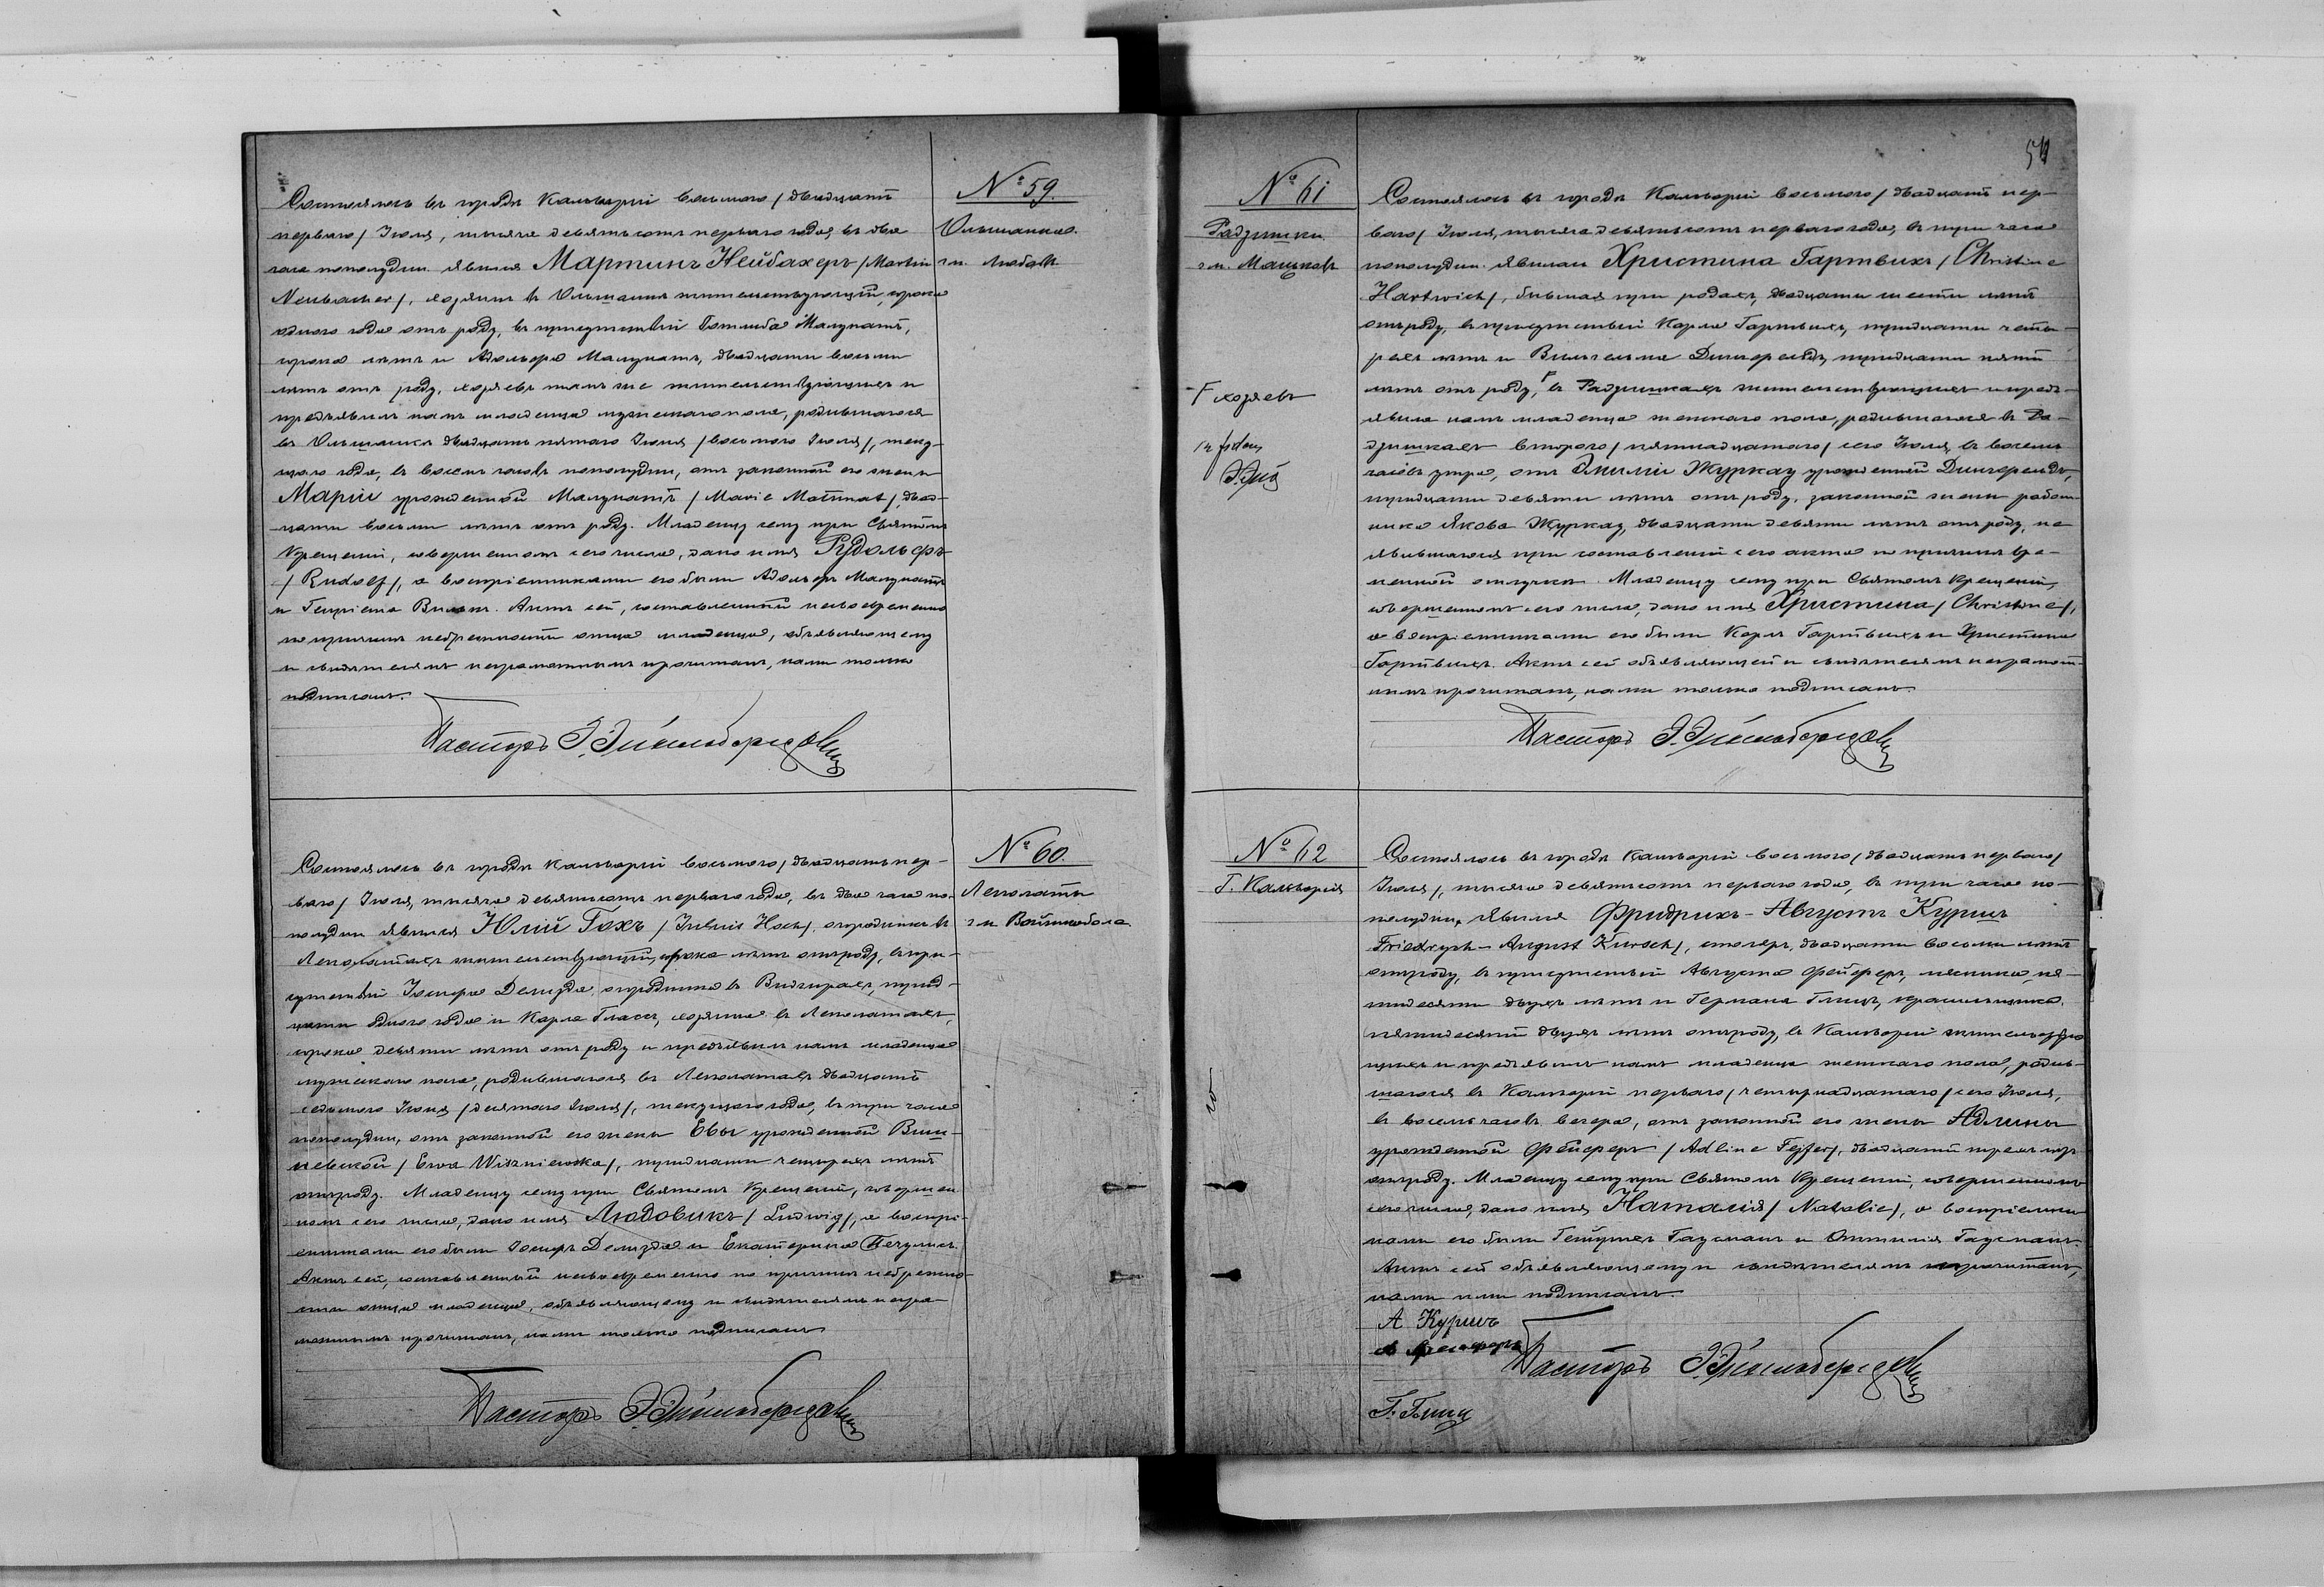 № 59.
Ольшанка.
гм. Любовъ
Состоялось въ городѣ Кальваріи восьмого /двадцать
перваго/ Іюля, тысяча девятьсотъ перваго года, въ два
часа пополудни. Явился Мартинъ Нейбахеръ /Martin
Neubacher/, хозяинъ въ Ольшанкѣ жительствующій, сорока
одного года отъ роду, въ присутствіи Готлиба Матунатъ,
сорока лѣтъ и Адольфа Матунатъ, двадцати восьми
лѣтъ отъ роду, хозяевъ тамъ же жительствующихъ и
предъявилъ намъ младенца мужескаго пола, родившагося
въ Ольшанкѣ двадцать пятаго Іюня /восьмого Іюля/, теку-
щаго года, въ восемь часовъ пополудни, отъ законной его жены
Маріи урожденной Матунатъ /Marie Matunat/, двад-
цати восьми лѣтъ отъ роду. Младенцу сему при Святомъ
Крещеніи, совершенномъ сего числа, дано имя Рудольфъ
/Rudolf/, а воспріемниками его были Адольфъ Матунатъ
и Генріета Актъ сей, составленный несвоевременно
по причинѣ небрежности отца младенца, объявляющему
и свидѣтелямъ неграмотнымъ прочитанъ, нами только
подписанъ.
Пасторъ
№ 60.
Леколаты
гм Войткобола
Состоялось въ городѣ Кальваріи восьмого /двадцать пер-
ваго/ Іюля, тысяча девятьсотъ перваго года, въ два часа по-
полудни явился Юлій Гохъ /Julius Hoch/, огородникъ въ
жительствующій, сорока лѣтъ отъ роду, въ при-
сутствіи Іосифа Делизда, огородника въ Видгирахъ, трид-
цати одного года и Карла Гласъ, хозяина въ
сорока девяти лѣтъ отъ роду и предъявилъ намъ младенца
мужескаго пола, родившагося въ двадцать
седьмого Іюня /десятаго Іюля/, текущаго года, въ три часа
пополудни, отъ законной его жены Евы урожденной Виш-
невской /Ewa Wiszniewska/, тридцати четырехъ лѣтъ
отъ роду. Младенцу сему при Святомъ Крещеніи, совершен-
номъ сего числа, дано имя Людовикъ /Ludwig/, а воспрі-
емниками его были Іосифъ Делизда и Екатерина
Актъ сей, составленный несвоевременно по причинѣ небрежно-
сти отца младенца, объявляющему и свидѣтелямъ негра-
мотнымъ прочитанъ, нами только подписанъ
Пасторъ
№ 61
Радзишки.
гм. Мацьковъ
Г хозяевъ
Состоялось въ городѣ Кальваріи восьмого /двадцать пер-
ваго/ Іюля, тысяча девятьсотъ перваго года, въ три часа
пополудни. явилась Христина Гартвихъ /Christine
Hartwich/, бывшая при родахъ, двадцати шести лѣтъ
отъ роду, въ присутствіи Карла Гартвихъ, тридцати четы-
рехъ лѣтъ и Вильгельма Дингфельдъ, тридцати пяти
лѣтъ отъ роду, Г въ Радзишкахъ жительствующихъ и предъ-
явила намъ младенца женскаго пола, родившагося въ Ра-
дзишкахъ второго /пятнадцатаго/ сего Іюля, въ восемь
часовъ утра, отъ Эмиліи Журкау урожденной Дингфельдъ,
тридцати девяти лѣтъ отъ роду, законной жены работ-
ника Якова Журкау, двадцати девяти лѣтъ отъ роду, не
явившагося при составленіи сего акта по причинѣ вре-
менной отлучки. Младенцу сему при Святомъ Крещеніи,
совершенномъ сего числа, дано имя Христина /Christine/,
а воспріемниками его были Карлъ Гартвихъ и Христина
Гартвихъ. Актъ сей объявляющей и свидѣтелямъ неграмот-
нымъ прочитанъ, нами только подписанъ.
Пасторъ
№ 62
Г. Кальварія
Состоялось въ городѣ Кальваріи восьмого /двадцать перваго/
Іюля/, тысяча девятьсотъ перваго года, въ три часа по-
полудни, явился Фридрихъ-Августъ Куршъ
Friedrych-August Kursch/, столяръ, двадцати восьми лѣтъ
отъ роду, въ присутствіи Августа Фейферъ, мясника, пя-
тидесяти двухъ лѣтъ и Германа Глицъ, красильщика,
пятидесяти двухъ лѣтъ отъ роду, въ Кальваріи жительствую-
щихъ и предъявилъ намъ младенца женскаго пола, родив-
шагося въ Кальваріи перваго /четырнадцатаго/ сего Іюля,
въ восемь часовъ вечера, отъ законной его жены Адлины
урожденной Фейферъ /Adline Fejfer/, двадцати трехъ лѣтъ
отъ роду. Младенцу сему при Святомъ Крещеніи, совершенномъ
сего числа, дано имя Наталія /Natalie/, а воспріемни-
ками его были Гаусманъ и Оттилія Гаусманъ.
Актъ сей объявляющему и свидѣтелямъ прочитанъ,
нами ими подписанъ.
А Куршъ
Пасторъ
Г. Глицъ